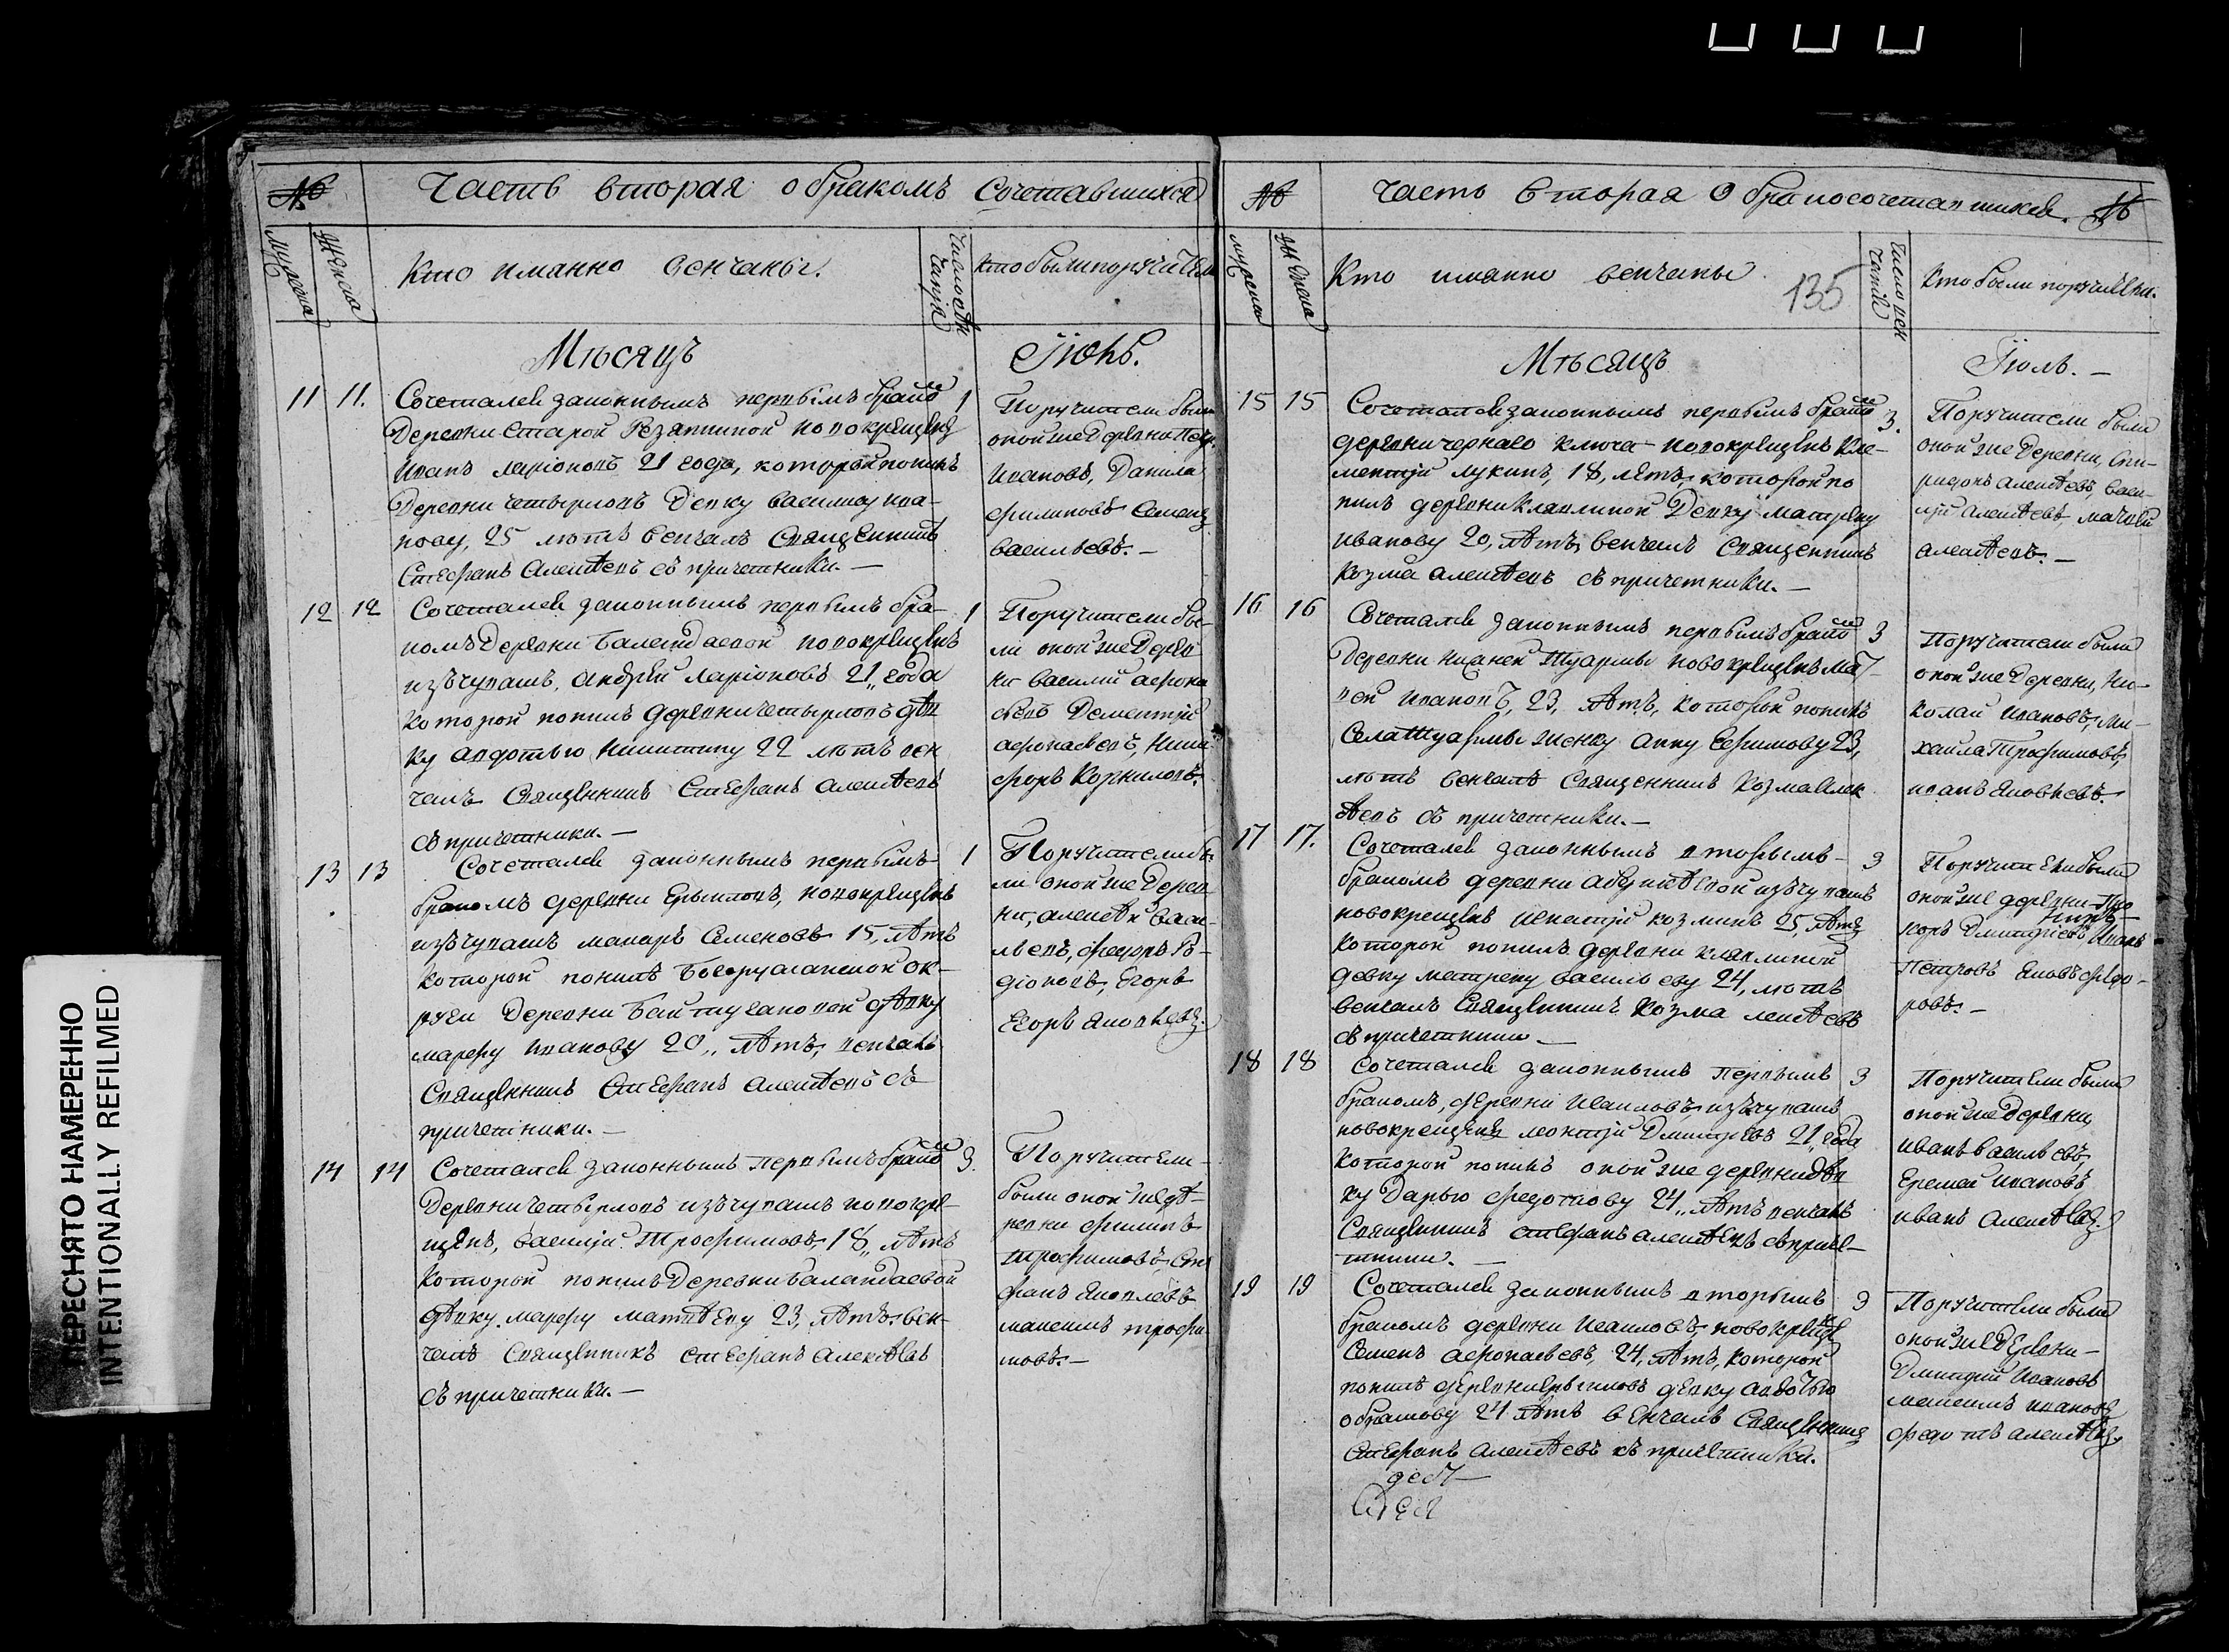 №
Часть вторая о бракомъ сочетавшихся
мужеска
женска
Кто иманно венчаны.
Кто были поручители
Мѣсяцъ
Іюнь.
11 11.
Сочетался законнымъ первымъ бракомъ
Деревни Старой Резяпкиной новокрещенъ
Иванъ Ларіоновъ 21 года, которой понялъ
Деревни Четырловъ Девку василису ива-
нову, 25 лѣтъ венчалъ Священникъ
Стефанъ Алексѣевъ съ причетники. —
1
Поручители были
оной же Деревни Петръ
Ивановъ, Данила
филиповъ Семенъ
васильевъ. —
12 12
Сочетался законнымъ первымъ бра-
комъ Деревни Баландаевой новокрещенъ
изъ чувашъ, андрей ларіоновъ 21 „ года
которой понялъ деревни четырловъ дѣв
ку авдотью никитину 22 лѣтъ вен
чалъ Священникъ Стефанъ Алексѣевъ
съ причетники. —
1
Поручители бы-
ли оной же Дерев
ни василий афона
сьевъ Дементій
афонасьевъ, Ники
форъ Корниловъ.
13 13
Сочетался законнымъ первымъ
бракомъ деревни Ерыкловъ, новокрещенъ
изъ чувашъ макаръ Семеновъ 15, лѣтъ
которой понялъ Бугорусланской ок-
руги Деревни Байтугановой дѣвку
марфу иванову 20 „ лѣтъ, венчалъ
Священникъ Стефанъ Алексѣевъ съ
причетники. —
1
Поручители бы
ли оной же Дерев
ни, алексѣй васи-
льевъ, федоръ Ро-
діоновъ, Егоръ
Егоръ яковлевъ.
14 14
Сочетался законнымъ первымъ бракомъ
Деревни Четырловъ изъ чувашъ новокре-
щенъ, василій Трофимовъ, 18 „ лѣтъ
которой понялъ Деревни Баландаевой
дѣвку марфу матвѣеву 23, лѣтъ, вен-
чалъ Священникъ стефанъ алексѣевъ
съ причетники. —
3.
Поручители
были оной же де-
ревни филипъ
трофимовъ, Сте
фанъ яковлевъ
максимъ трофи
мовъ. —
№
Часть вторая о бракосочетавшихся.
№
мужеска
женска
Кто имянно венчаны
135
Кто были поручители.
Мѣсяцъ
Іюль. —
15 15
Сочетался законнымъ первымъ бракомъ
деревни чернаго ключа новокрещенъ Кле-
ментій лукинъ, 18, лѣтъ, которой по
нялъ деревни Клявлиной Девку матрену
иванову 20, лѣтъ, венчалъ Священникъ
Козма алексѣевъ съ причетники. —
3.
Поручители были
оной же Деревни, Спи-
ридонъ алексѣевъ, васи-
лій алексѣевъ, матвей
алексѣевъ. —
16 16
Сочетался законнымъ первымъ бракомъ
Деревни нижней Туармы новокрещенъ мат-
вей ивановъ, 23, лѣтъ, которой понялъ
Села Туармы женку анну Ефимову 23,
лѣтъ венчалъ Священникъ Козма Алек
ѣевъ съ причетники. —
3
Поручители были
оной же Деревни, Ни-
колай ивановъ, ми-
хаила Трофимовъ,
иванъ яковлевъ.
17 17.
Сочетался законнымъ вторымъ
бракомъ деревни изъ чувашъ
новокрещенъ игнатій козминъ 25 лѣтъ
которой понялъ деревни клявлиной
девку матрену васильеву 24, лѣтъ
венчалъ Священникъ Козма лексѣевъ
съ причетники —
3
Поручители были
оной же деревни
Дмитріевъ, Иванъ
Петровъ яковъ федо-
ровъ. —
18 18
Сочетался законнымъ первымъ
бракомъ, деревни Исаковъ, изъ чувашъ
новокрещенъ леонтій Дмитріевъ 21, года
которой понялъ оной же деревни дѣв
ку Дарью федотову 24 „ лѣтъ венчалъ
Священникъ стефанъ алексѣевъ съ приче-
тники. —
3
Поручители были
оной же деревни,
иванъ васильевъ,
Еремей ивановъ
иванъ Алексѣевъ.
19 19
Сочетался законнымъ вторымъ
бракомъ деревни Исаковъ, новокрещенъ
Семенъ афонасьевъ, 24, лѣтъ, которой
понялъ деревни Ерыкловъ девку авдотью
абрамову 24 лѣтъ венчалъ Священникъ
Стефанъ Алексѣевъ съ причетники.
3
Поручители были
оной же Деревни
Дмитрий Ивановъ
максимъ ивановъ
федотъ алексѣевъ.
ПЕРЕСНЯТО НАМЕРЕННО
INTENTIONALLY REFILMED